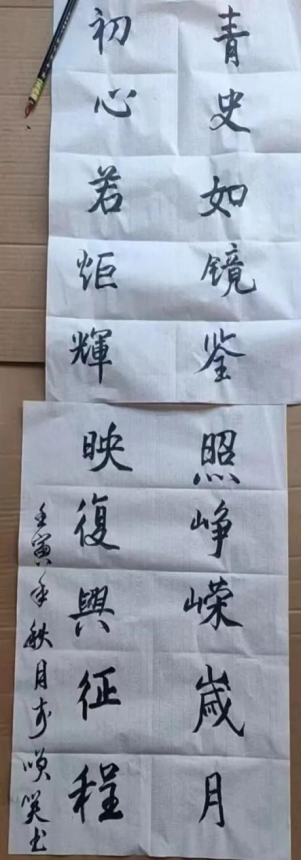 青史如镜鉴
照峥嵘岁月
初心若炬輝
映復興征程
壬寅年秋月于
笑书